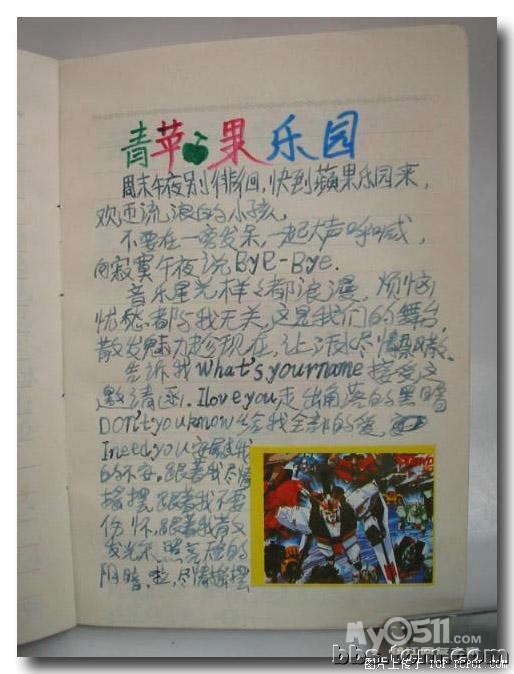 青苹果乐园
周末午夜别徘徊,快到蘋果乐园来,
欢迎流浪的小孩。
不要在一旁发呆,一起大声呼喊,
向寂寞午夜说Bye-Bye.
音乐星光样样都浪漫,烦恼
忧愁都与我无关,这是我们的舞台,
散发魅力趁现在,让汗水尽情飘散、
告诉我what's your name 接受这
邀请函. I love you 走出角落的黑暗
DON't you know 给我全部的爱,
I need you 安慰我
的不安。跟着我尽情
摇摆 跟着我不要
伤怀,跟着我
发光 照亮你的
阴暗, 尽情摇摆
My0511.com
bbs.
图片上传于